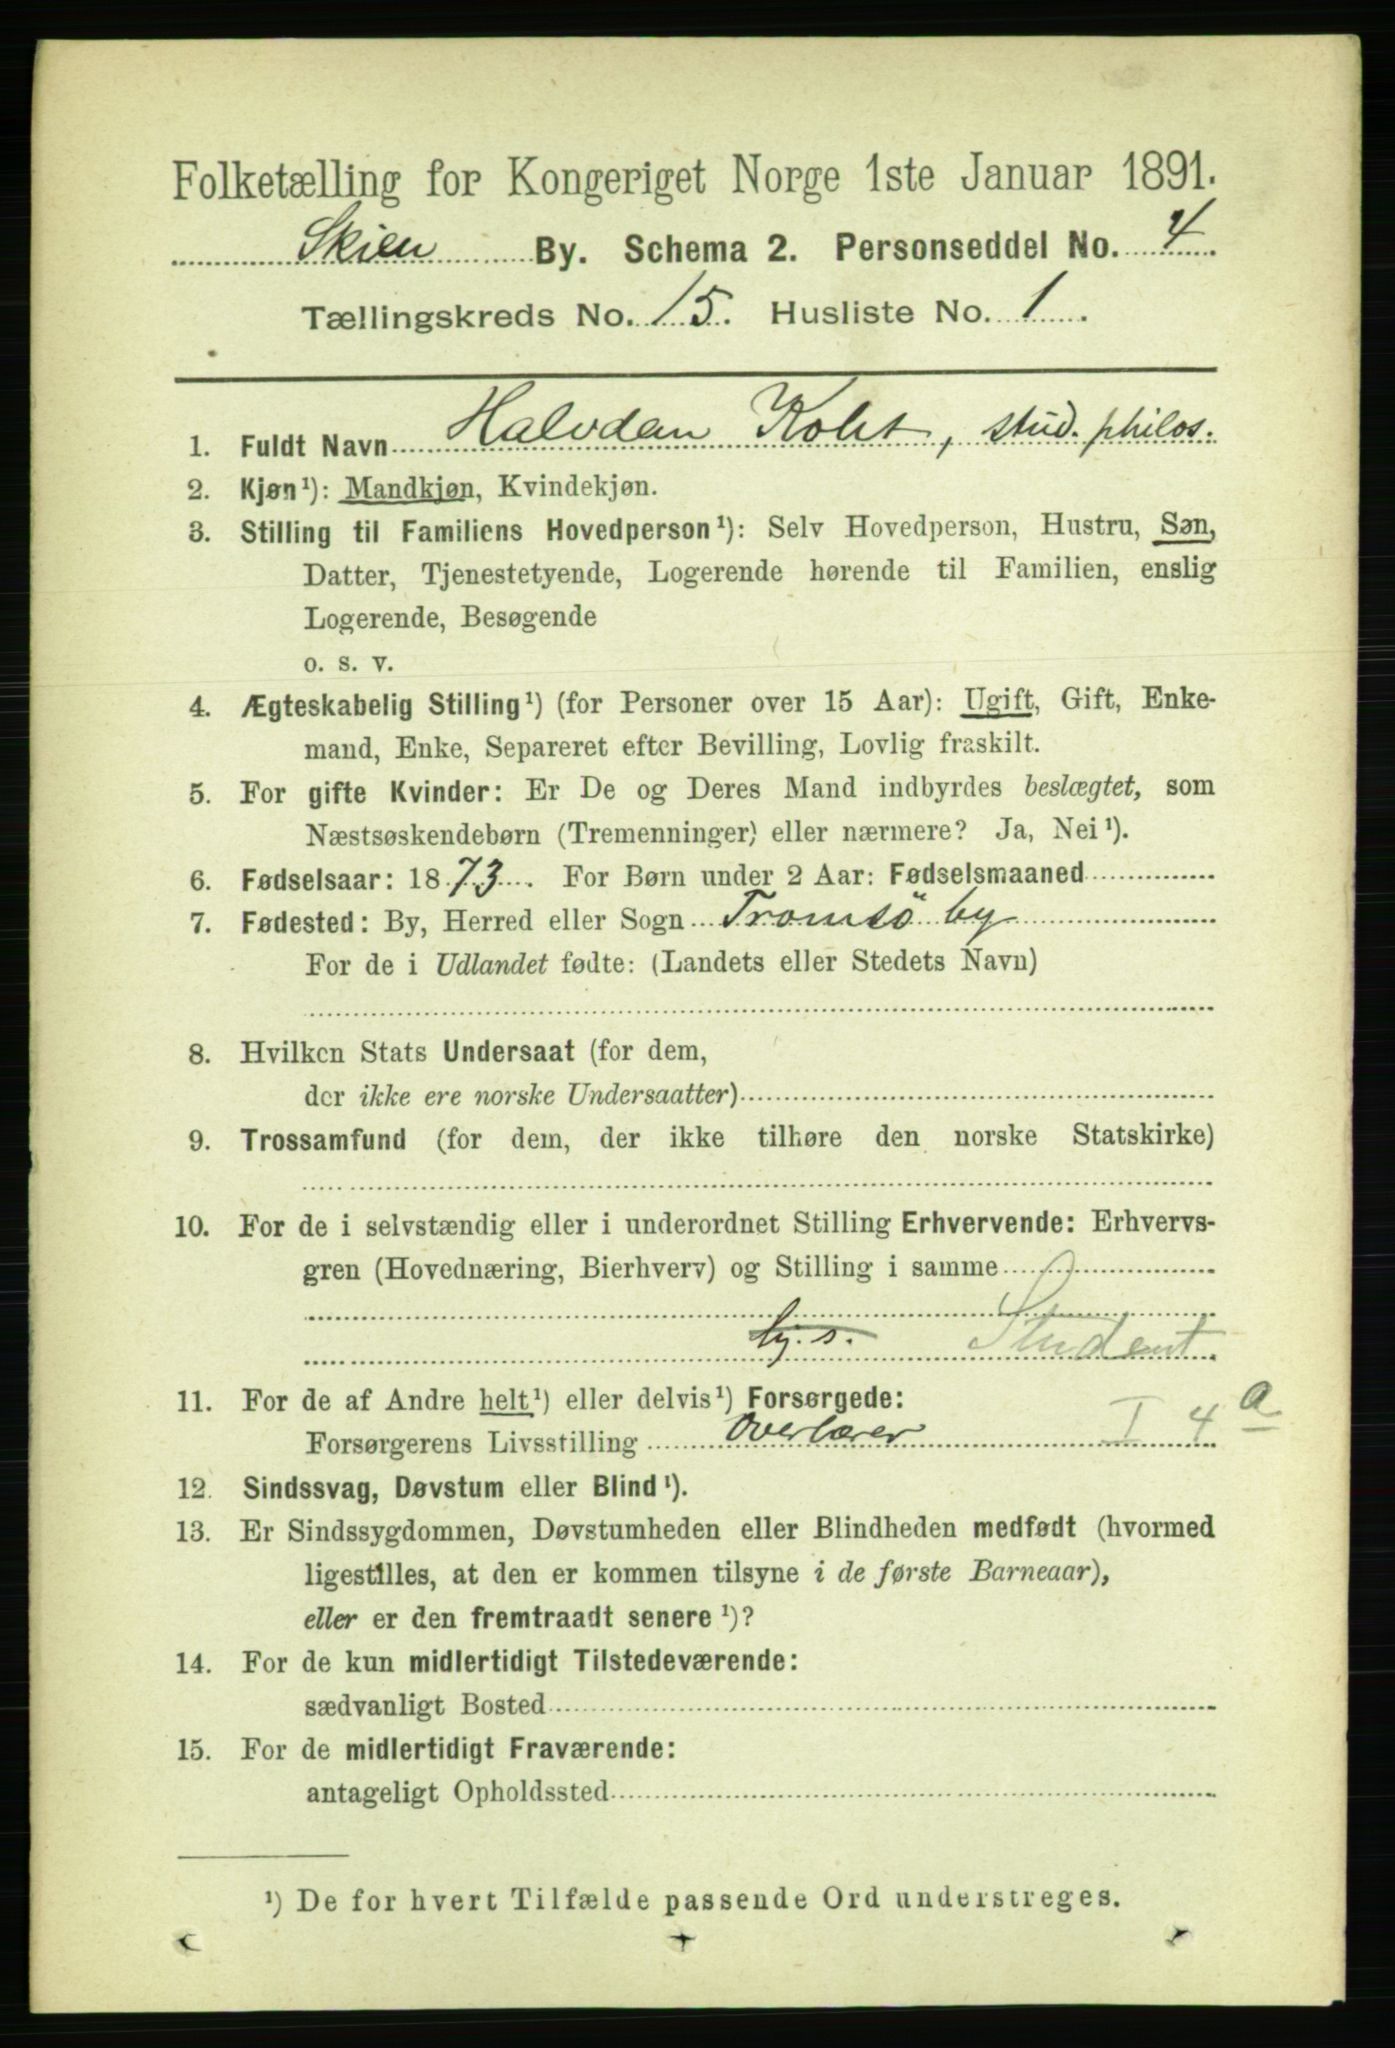 Folketælling for Kongeriget Norge 1ste Januar 1891.
Skien By. Schema 2. Personseddel No. 4
Tællingskreds No. 15. Husliste No. 1.
1. Fuldt Navn Halvdan Koht, stud. philos.
2. Kjøn¹): Mandkjøn, Kvindekjøn.
3. Stilling til Familiens Hovedperson¹): Selv Hovedperson, Hustru, Søn,
Datter, Tjenestetyende, Logerende hørende til Familien, enslig
Logerende, Besøgende
o. s. v.
4. Ægteskabelig Stilling¹) (for Personer over 15 Aar): Ugift, Gift, Enke-
mand, Enke, Separeret efter Bevilling, Lovlig fraskilt.
5. For gifte Kvinder: Er De og Deres Mand indbyrdes beslægtet, som
Næstsøskendebørn (Tremenninger) eller nærmere? Ja, Nei¹).
6. Fødselsaar: 1873. For Børn under 2 Aar: Fødselsmaaned
7. Fødested: By, Herred eller Sogn Tromsö by
For de i Udlandet fødte: (Landets eller Stedets Navn)
8. Hvilken Stats Undersaat (for dem,
der ikke ere norske Undersaatter)
9. Trossamfund (for dem, der ikke tilhøre den norske Statskirke)
10. For de i selvstændig eller i underordnet Stilling Erhvervende: Erhvervs-
gren (Hovednæring, Bierhverv) og Stilling i samme
Student
11. For de af Andre helt¹) eller delvis¹) Forsørgede:
Forsørgerens Livsstilling Overlærer I 4 a
12. Sindssvag, Døvstum eller Blind¹).
13. Er Sindssygdommen, Døvstumheden eller Blindheden medfødt (hvormed
ligestilles, at den er kommen tilsyne i de første Barneaar),
eller er den fremtraadt senere¹)?
14. For de kun midlertidigt Tilstedeværende:
sædvanligt Bosted
15. For de midlertidigt Fraværende:
antageligt Opholdssted
¹) De for hvert Tilfælde passende Ord understreges.